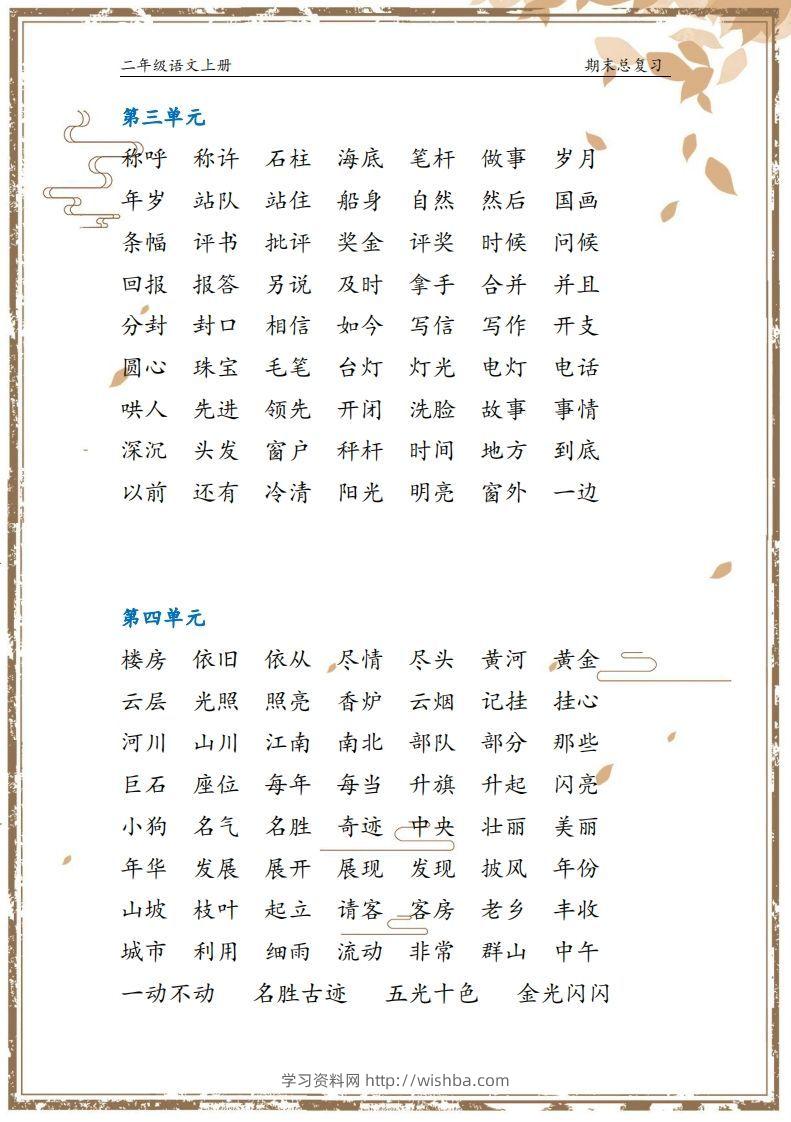 二年级语文上册 期末总复习
第三单元
称呼 称许 石柱 海底 笔杆 做事 岁月
年岁 站队 站住 船身 自然 然后 国画
条幅 评书 批评 奖金 评奖 时候 问候
回报 报答 另说 及时 拿手 合并 并且
分封 封口 相信 如今 写信 写作 开支
圆心 珠宝 毛笔 台灯 灯光 电灯 电话
哄人 先进 领先 开闭 洗脸 故事 事情
深沉 头发 窗户 秤杆 时间 地方 到底
以前 还有 冷清 阳光 明亮 窗外 一边
第四单元
楼房 依旧 依从 尽情 尽头 黄河 黄金
云层 光照 照亮 香炉 云烟 记挂 挂心
河川 山川 江南 南北 部队 部分 那些
巨石 座位 每年 每当 升旗 升起 闪亮
小狗 名气 名胜 奇迹 中央 壮丽 美丽
年华 发展 展开 展现 发现 披风 年份
山坡 枝叶 起立 请客 客房 老乡 丰收
城市 利用 细雨 流动 非常 群山 中午
一动不动 名胜古迹 五光十色 金光闪闪
学习资料网 http://wishba.com